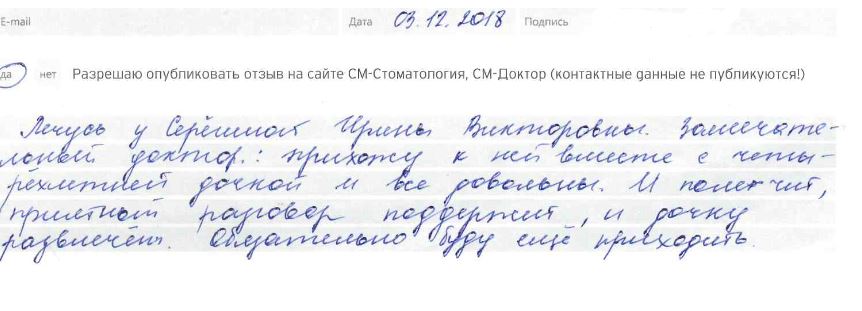 E-mail Дата 03.12.2018 Подпись
да нет Разрешаю опубликовать отзыв на сайте СМ-Стоматология, СМ-Доктор (контактные данные не публикуются!)
Лечусь у Ирины Викторовны. Замечате-
льный доктор.: прихожу к ней вместе с четы-
рёхлетней дочкой и все довольны. И полечит,
приятный разговор поддержит, и дочку
развлечёт. Обязательно буду ещё приходить.